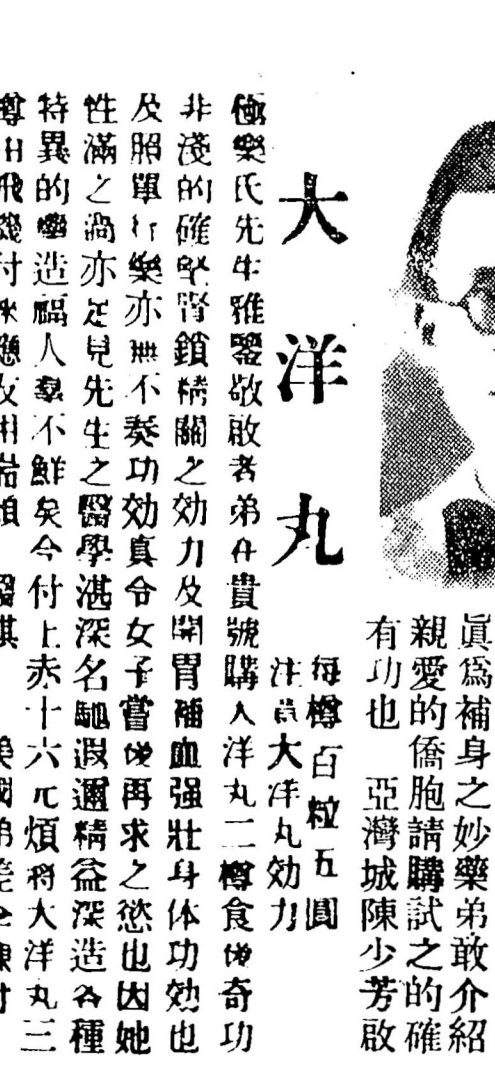 眞為補身之妙藥弟敢介紹
親愛的僑胞請購試之的確
有功也 亞灣城陳少芳啟
大洋丸
每樽百粒五圓
注意大洋丸効力
極樂氏先生雅鑒敬啟者弟在貴號購入洋丸二樽食後奇功
非淺的確堅腎鎖精關之効力及開胃補血强壯身体功効也
及照單行樂亦無不奏功効真令女子嘗後再求之慾也因她
性滿之過亦足見先生之醫學湛深名馳遐邇精益深造各種
特異的藥造福人羣不鮮矣今付上赤十六元煩將大洋丸三